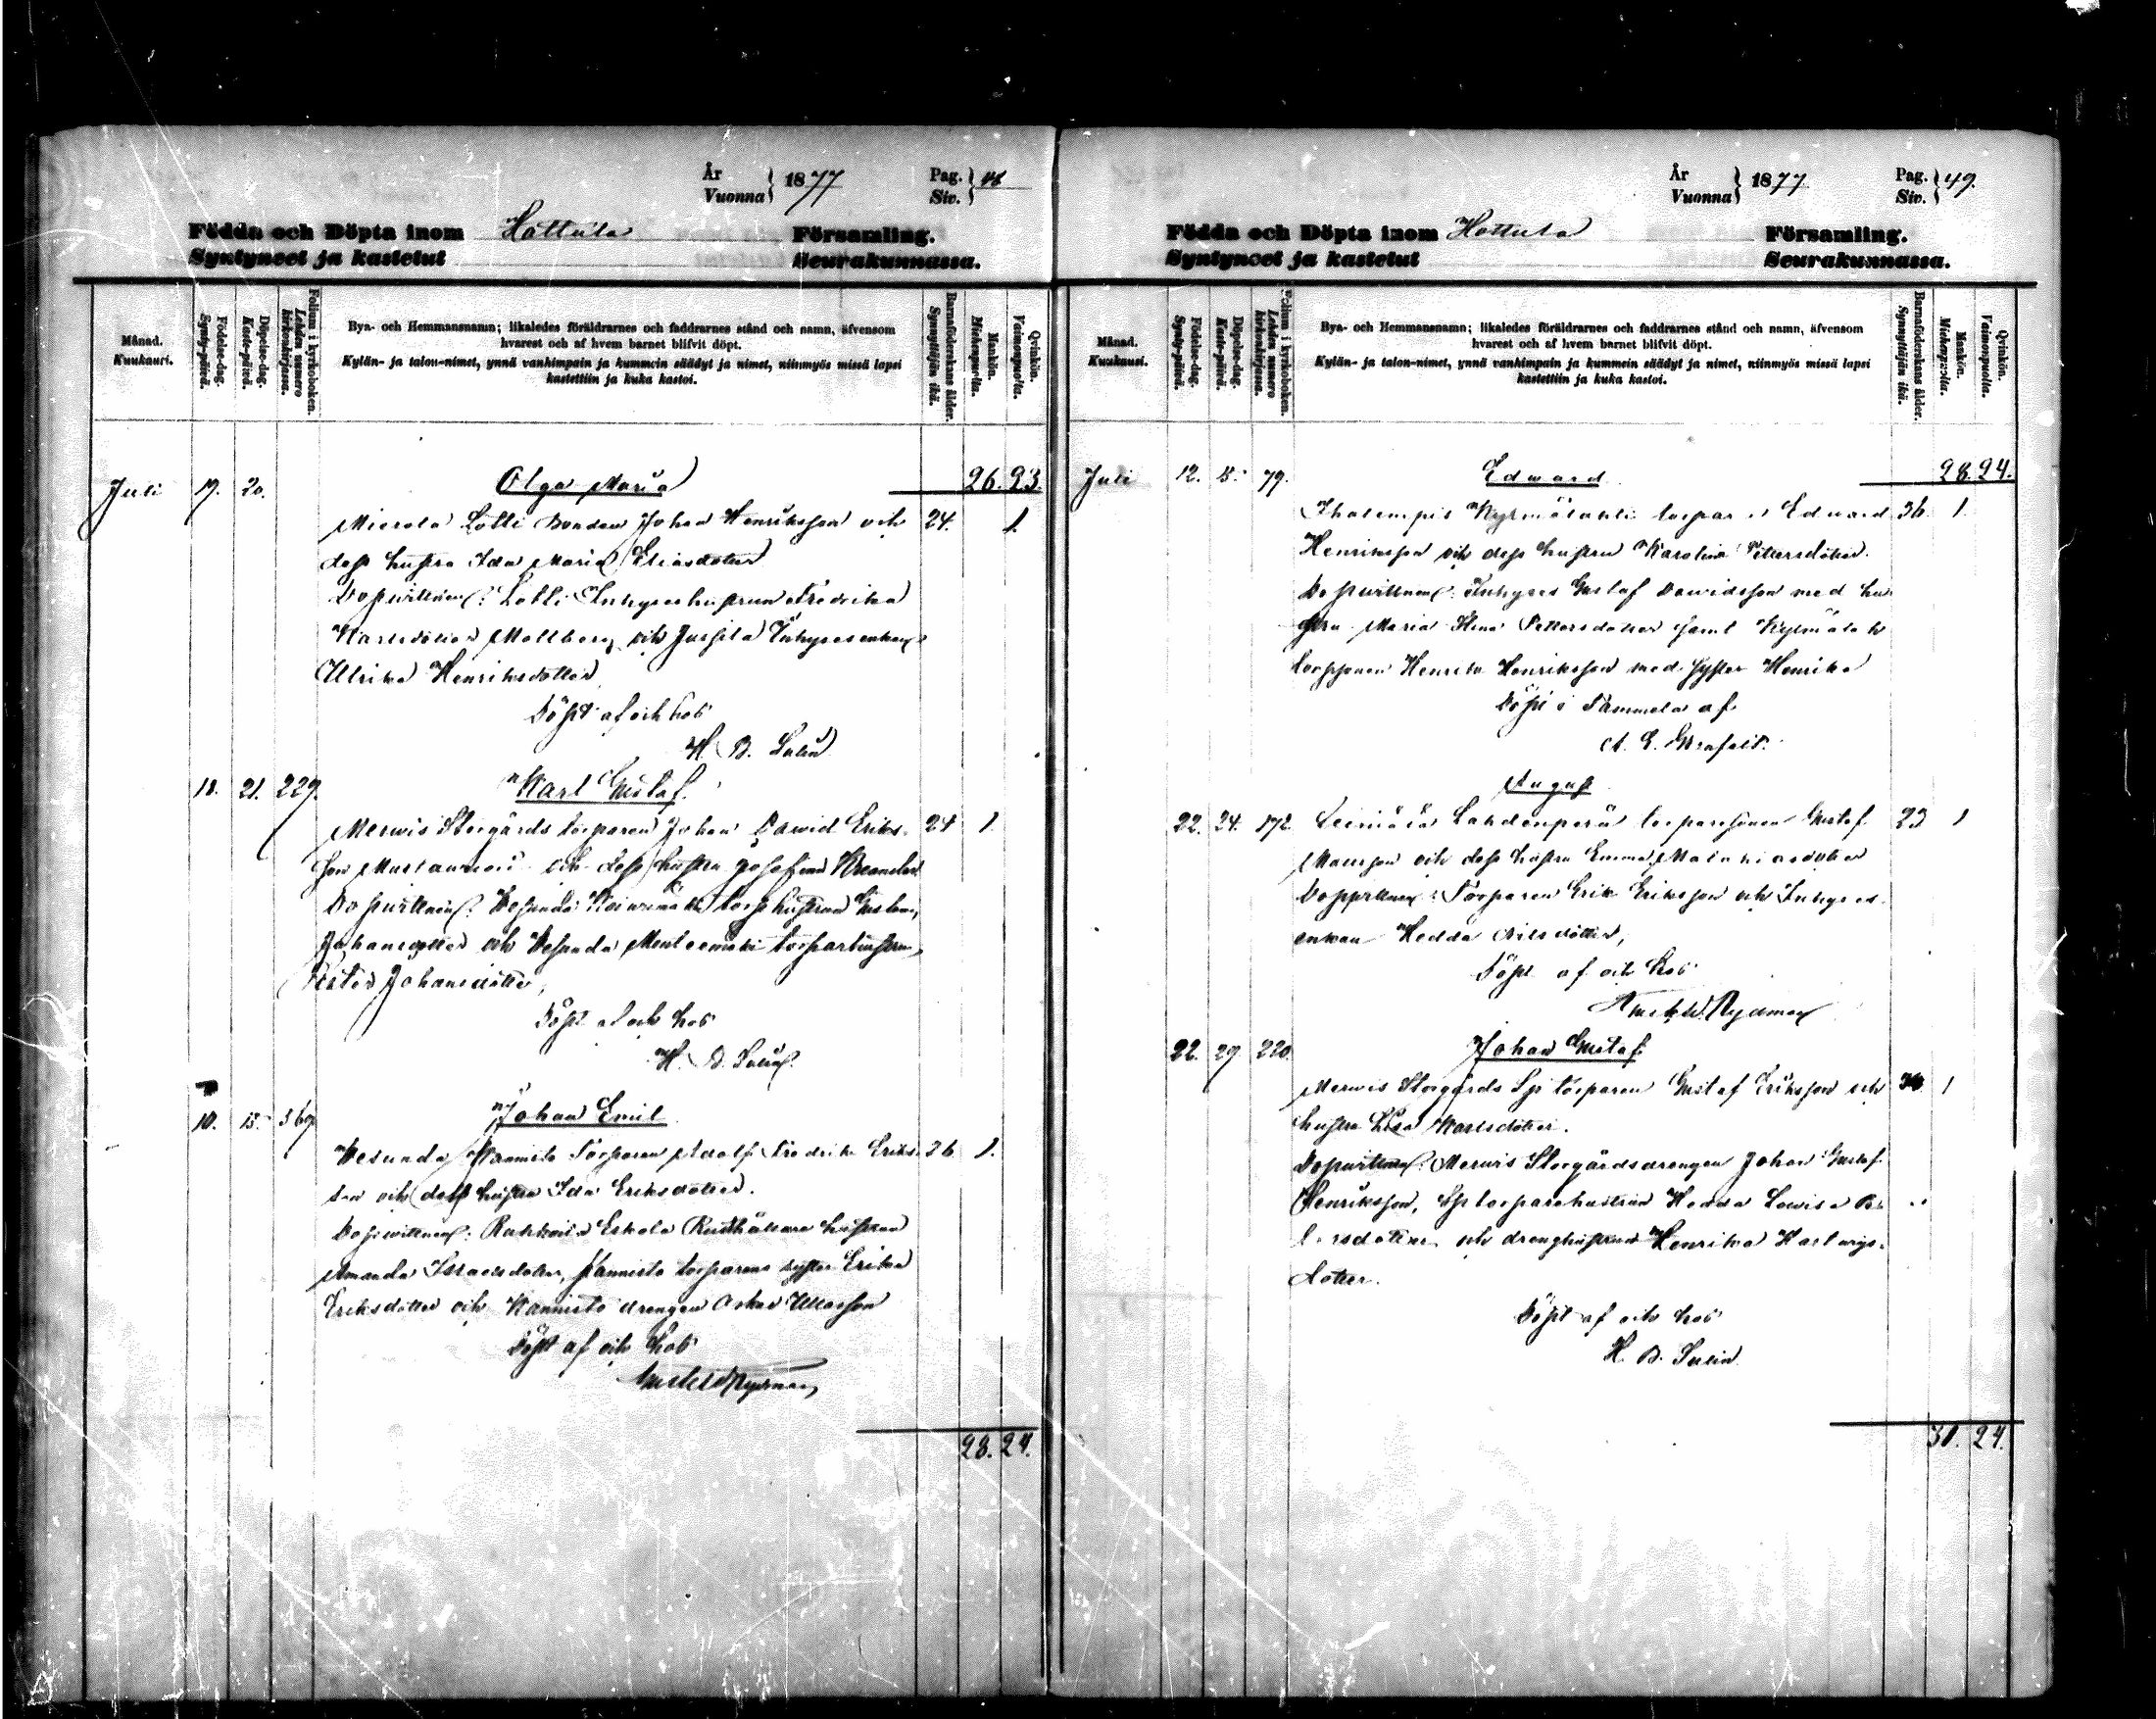 År
Vuonna } 1877
Pag.
Siv. } 48
Födda och Döpta inom Hattula Församling.
Syntyneet ja kastetut Seurakunnassa.
Månad.
Kuukausi.
Födelse-dag.
Synty-päivä.
Döpelse-dag.
Kaste-päivä.
Folium i kyrkoboken.
Lehden numero kirkonkirjassa.
Bya- och Hemmansnamn; likaledes föräldrarnes och faddrarnes stånd och namn, äfvensom
hvarest och af hvem barnet blifvit döpt.
Kylän- ja talon-nimet, ynnä vanhimpain ja kummein säädyt ja nimet, niinmyös missä lapsi
kastettiin ja kuka kastoi.
Barnaföderskans ålder.
Synnyttäjän ikä.
Mankön.
Miehenpuolta.
Qvinkön.
Vaimonpuolta.
Olga Maria 26. 23.
Juli 19. 20.
Mierola Lotti Bonden Johan Henriksson och 24. 1.
dess hustru Ida Maria Eliasdotter
Dopvittnen: Lotti Inhyseshustrun Fredrika
Karlsdotter Mollberg och Inhysesenkan
Ulrika Henriksdotter
Döpt af och hos
H. B. Salin
18. 21. 229. Karl Gustaf.
Merwis Storgårds torparen Johan Dawid Eriks- 24 1.
son och dess hustru Josefina
Dopvittnen: torphustrun
Johansdotter och Wesunda torparhustrun
Johansdotter,
Döpt af och hos
H. B. Salin
10. 15. 369 Johan Emil
Wesunda Kannisto Torparen Adolf Fredrik Eriks- 26 1.
son och dess hustru Ida Eriksdotter.
Dopvittnen: Eskola hustrun
Amanda Israelsdotter, Kannisto torparens syster Erika
Eriksdotter och Kannisto drengen Oskar
Döpt af och hos
Rydman
28. 24.
År
Vuonna } 1877
Pag.
Siv. } 49.
Födda och Döpta inom Hattula Församling.
Syntyneet ja kastetut Seurakunnassa.
Månad.
Kuukausi.
Födelse-dag.
Synty-päivä.
Döpelse-dag.
Kaste-päivä.
Folium i kyrkoboken.
Lehden numero kirkonkirjassa.
Bya- och Hemmansnamn; likaledes föräldrarnes och faddrarnes stånd och namn, äfvensom
hvarest och af hvem barnet blifvit döpt.
Kylän- ja talon-nimet, ynnä vanhimpain ja kummein säädyt ja nimet, niinmyös missä lapsi
kastettiin ja kuka kastoi.
Barnaföderskans ålder.
Synnyttäjän ikä.
Mankön.
Miehenpuolta.
Qvinkön.
Vaimonpuolta.
28. 24.
Juli 12. 15. 79. Edward
Ihalempis torparen Edward 36. 1.
Henriksson och dess hustru Karolina Pettersdotter.
Dopvittnen: Inhyses Gustaf Dawidsson med hu-
stru Maria Stina Pettersdotter samt
Henrik Henriksson med syster Henrika
Döpt i Tammela af
A. E. Granfelt.
August
22. 24. 172. Leiniälä Lahdenperä torparesonen Gustaf 23 1
och dess hustru Emma
Dopvittnen: Torparen Erik Eriksson och Inhyses-
enkan Hedda Nilsdotter,
Döpt af och hos
Rydman
22. 29. 220. Johan Gustaf.
Merwis Storgårds Sp torparen Gustaf Eriksson och 1
hustru Lisa Karlsdotter.
Dopvittnen: Merwis Storgårdsdrengen Johan Gustaf
Henriksson, Sp torparehustrun Hedda Lowisa
och drenghustrun Henrika
dotter.
Döpt af och hos
H. B. Salin
31. 24.